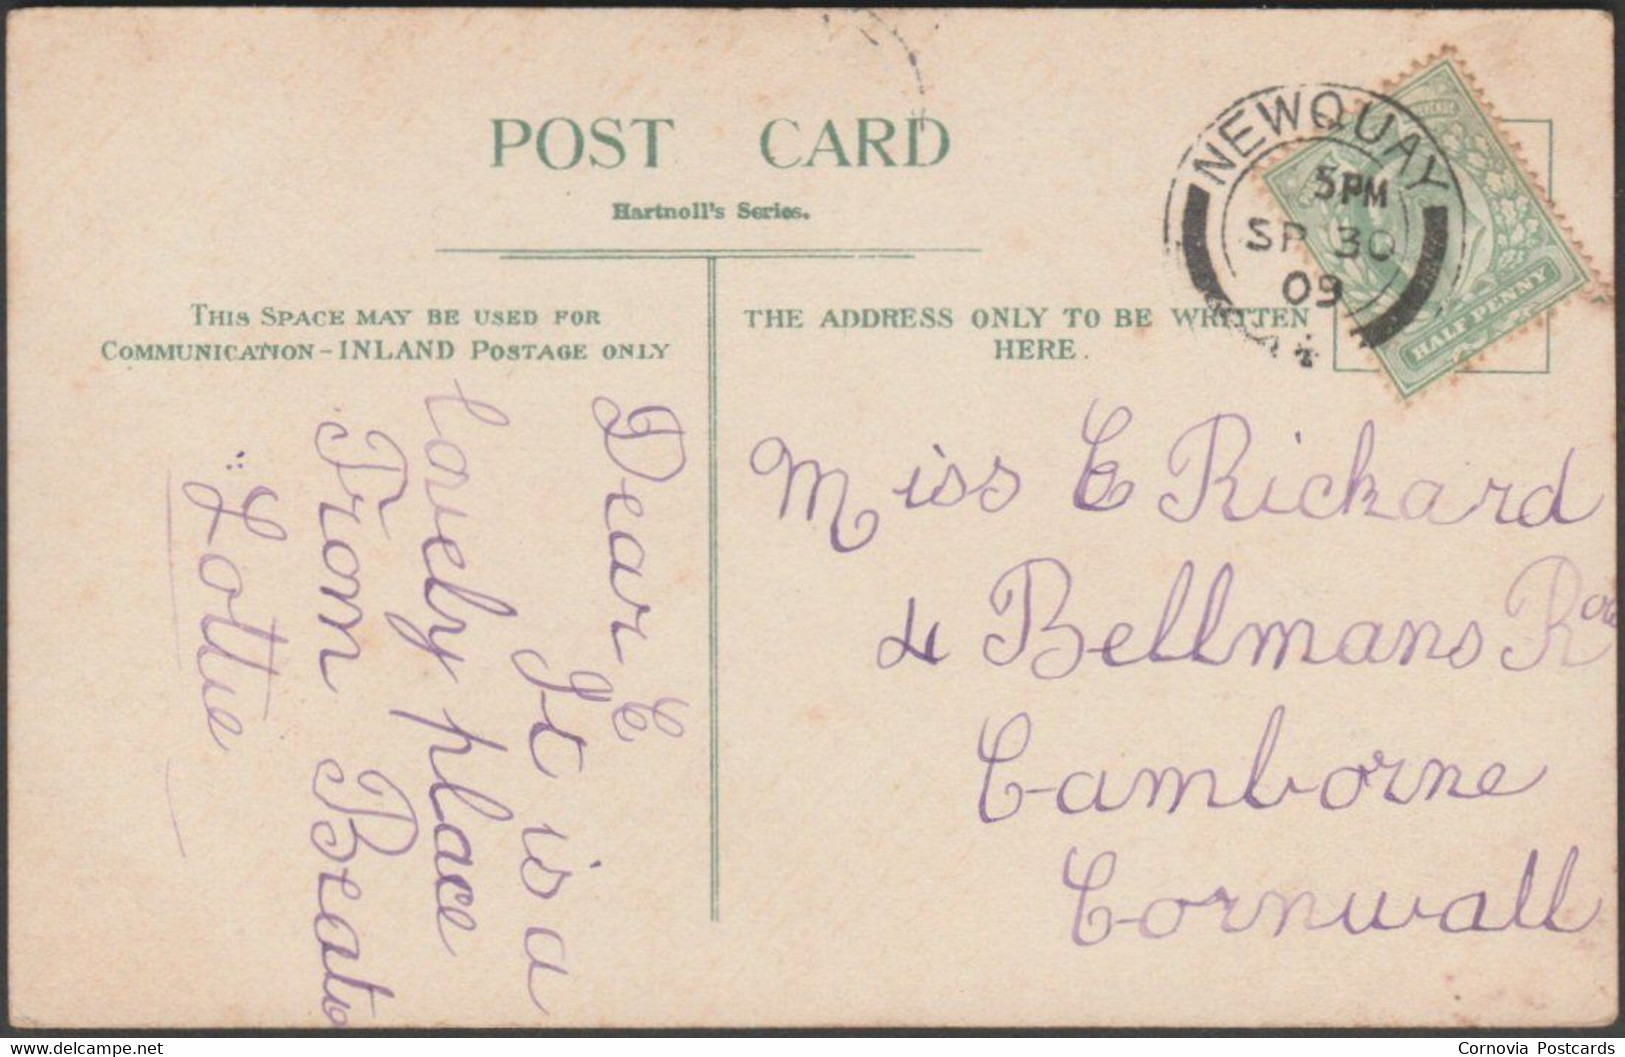 POST CARD
Hartnoll's Series.
THIS SPACE MAY BE USED FOR
COMMUNICATION - INLAND POSTAGE ONLY
THE ADDRESS ONLY TO BE WRITTEN
HERE.
NEWQUAY
5PM
SP 30
09
HALF PENNY
Dear E
It is a
lovely place
From Beat
Lottie
Miss E Rickard
4 Bellmans Roa
Camborne
Cornwall
delcampe.net
Cornovia Postcards